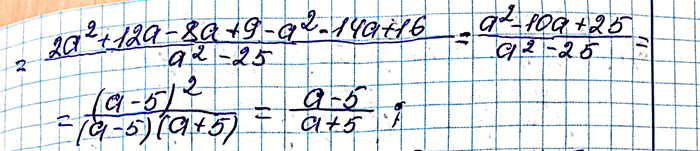 = (2a² + 12a - 8a + 9 - a² - 14a + 16)/(a² - 25) = (a² - 10a + 25)/(a² - 25) =
= (a - 5)²/((a - 5)(a + 5)) = (a - 5)/(a + 5) ;